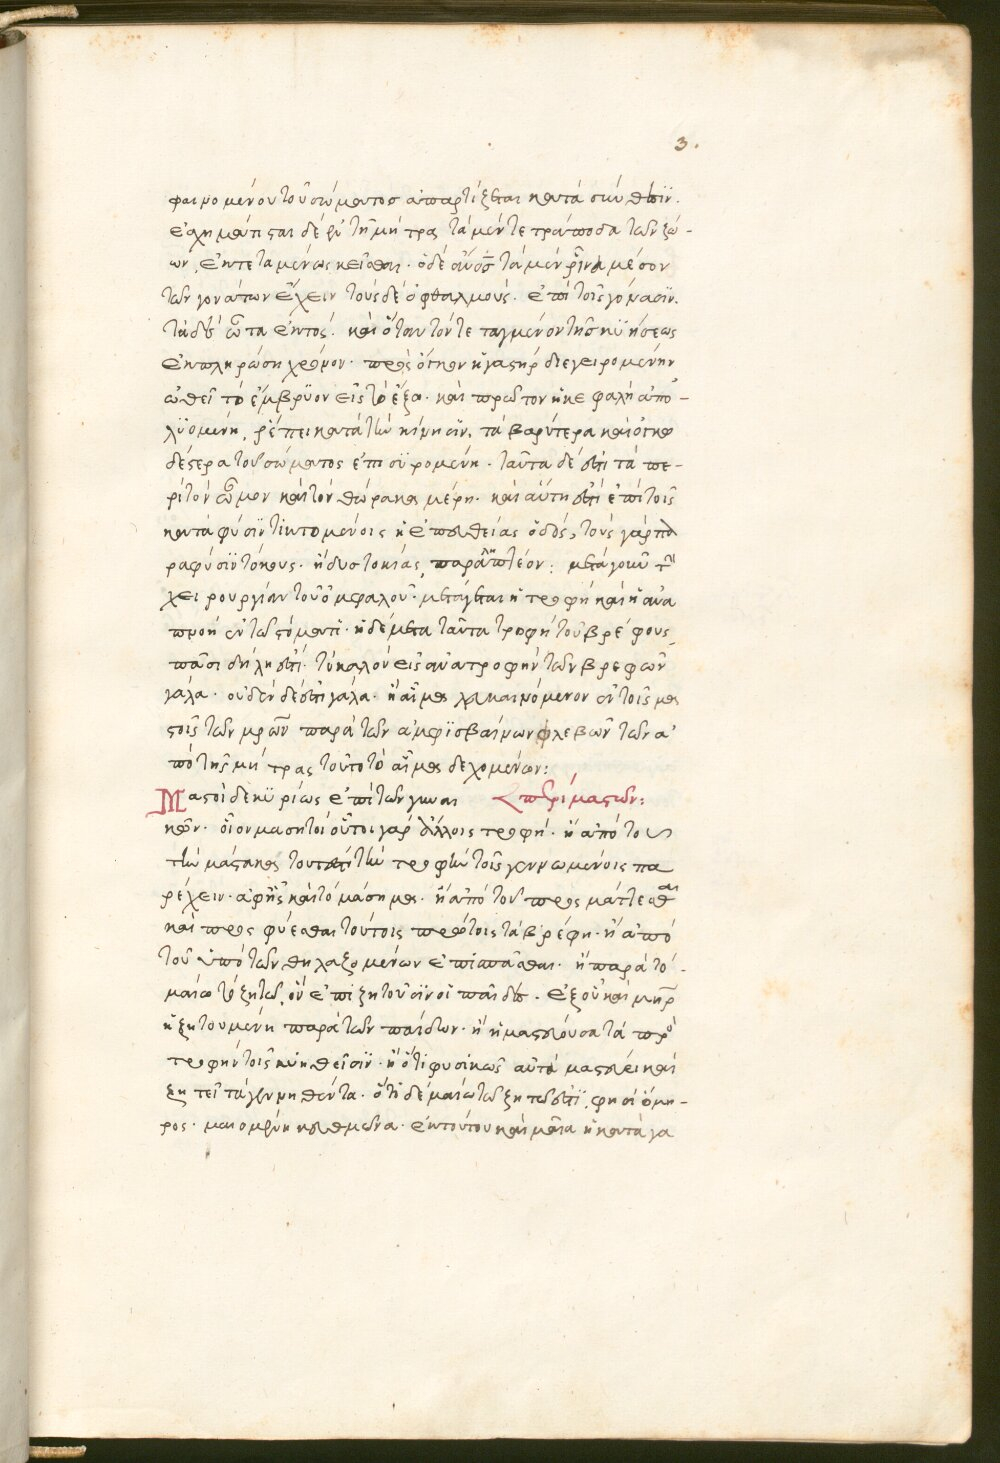 3.
φαινομένου τοῦ σώματος ἀπαρτίζεται κατὰ στάθμιν.
ἐσχημάτισται δὲ ἐν τῇ μήτρᾳ τὰ μὲν τετράποδα τῶν ζώ-
ων, ἐκτεταμένως κεῖσθαι. ὁ δὲ ἄνος τὰ μὲν ῥῖνα μέσον
τῶν γονάτων ἔχειν τοὺς δὲ ὀφθαλμούς. ἐπὶ τοῖς γόνασϊν.
τὰ δὲ ὦτα ἐκτός. καὶ ὅταν τὸν τεταγμένον τῆς κϋήσεως
ἐκπληρώση χρόνον. πρὸς ὄγκον ἡ γαστὴρ διεγειρομένην
ὠθεῖ τὸ ἔμβρϋον εἰς τὸ ἔξω. καὶ πρῶτον ἡ κεφαλὴ ἀπο-
λϋομένη, ῥέπει κατὰ τὴν κίνησιν, τὰ βαρύτερα καὶ ὀγκω
δέστερα τοῦ σώματος ἐπισϋρομένη. ταῦτα δέ ἐστι τὰ πε-
ρὶ τὸν ὦμον καὶ τὸν θώρακα μέρη. καὶ αὕτη ἐστὶ ἐπὶ τοῖς
κατὰ φύσϊν τικτομένοις ἡ ἐπ᾽ εὐθείας ὁδός, τοὺς γὰρ πα
ραφύσϊν τόκους. ἢ δυστοκίας, παραλειπτέον: μετὰ γοῦν τὴν
χειρουργίαν τοῦ ὀμφαλοῦ. μετάγεται ἡ τροφὴ καὶ ἡ ἀνα
πνοὴ ἐν τῷ στόματι. ἡ δὲ μετα ταῦτα τροφὴ τοῦ βρέφους,
πᾶσι δήλη ἐστί. τὸ καλὸν εἰς ἀνατροφὴν τῶν βρεφῶν
γάλα. οὐδὲν δέ ἐστι γάλα. ἢ αἷμα λευκαινόμενον ἐν τοῖς μα
στοῖς τῶν μρῶν παρὰ τῶν ἀμφισβαίνων φλεβῶν τῶν ἀ
πὸ τῆς μήτρας τοῦτο τὸ αἷμα δεχομένων:
Μαστοὶ δὲ κϋρίως ἐπὶ τῶν γυναι περὶ μαστῶν:
κῶν. οἷον μασητοὶ οὗτοι γὰρ ἄλλοις τροφή. ἢ ἀπὸ τοῦ
τὴν μάστακα τουτέστι τὴν τροφὴν τοῖς γεννωμένοις πα
ρέχειν. ἀφ᾽ ἧς καὶ τὸ μάσημα. ἢ ἀπὸ τοῦ προσμάττεσθαι
καὶ προσφύεσθαι τούτοις πρώτοις τὰ βρέφη. ἢ ἀπὸ
τοῦ ὑπὸ τῶν θηλαζομένων ἐπισπᾶσθαι. ἢ παρὰ τὸ.
μαίω τὸ ζητῶ, ὃν ἐπιζητοῦσϊν οἱ παῖδες. ἐξ οὗ καὶ μηρ
ἡ ζητουμένη παρὰ τῶν παίδων. ἢ ἡ μαστεύουσα τὰ πρὸ
τροφὴν τοῖς κυηθεῖσϊν. ἢ ὅτι φυσικῶς αὐτὰ μαστεύει καὶ
ζητεῖ τὰ γεννηθέντα. ὅτι δὲ μαίω τῶ ζητῶ ἐστϊ, φησὶ ὅμη-
ρος. μαιομένη κευθμῶνα. ἐκ τούτου καὶ μαῖα ἡ κατὰ γα